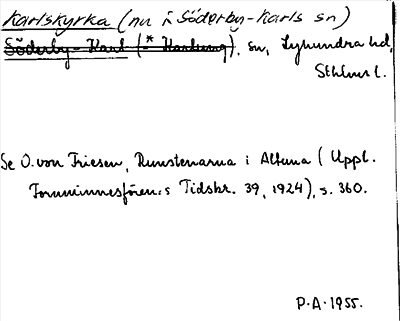 Karlskyrka (nu i Söderby-Karls sn)
Söderby-Karl (* Karlung), sn, Lyhundra hd,
Sthlms l.
Se O. von Friesen, Runstenarna i Altuna (Uppl.
Fornminnesfören:s Tidskr. 39, 1924), s. 360.
P.A. 1955.